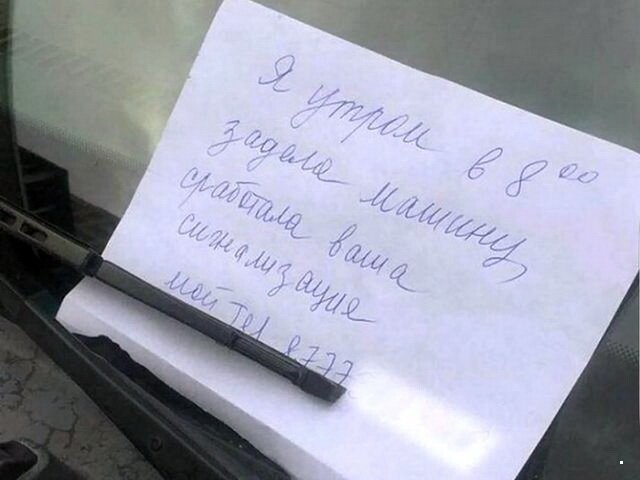 Я утром в 8 00
задела машину,
сработала ваша
сигнализация
мой тел 8777